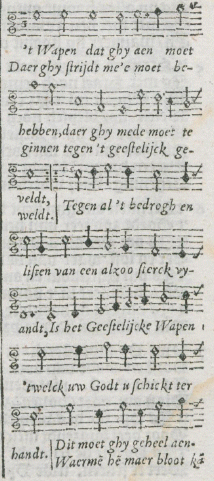 't Wapen dat ghy aen moet
Daer ghy strijdt me'e moet be-
hebben, daer ghy mede moet te
ginnen tegen 't geestelijck ge-
veldt,
weldt.
Tegen al 't bedrogh en
listen van een alzoo sterck vy-
andt, Is het Geestelijcke Wapen
'twelck uw Godt u schickt ter
handt.
Dit moet ghy geheel aen-
Waermē hē maer bloot